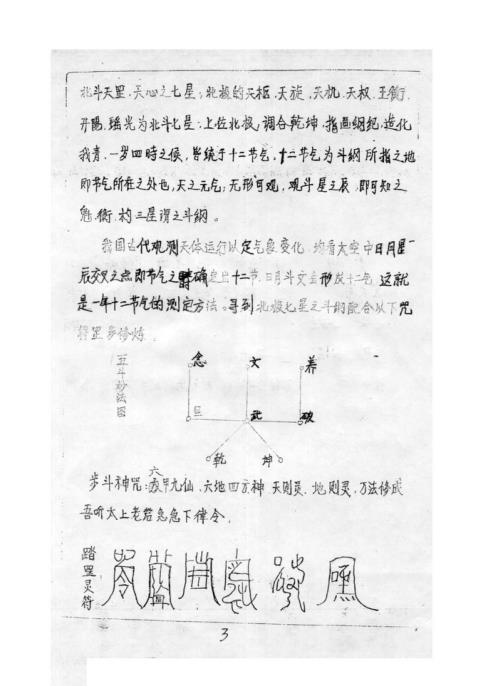 北斗天罡,天心之七星,北极的天枢,天旋,天机,天权,玉衡,
开陽,瑶光为北斗七星,上佐北极,调合乾坤,指画纲纪,造化
我青,一岁四時之候,皆统于十二节气,十二节气为斗纲所指之地
即节气所在之处也,天之元气,无形可观,观斗星之辰,即可知之
魁,衡,杓三星谓之斗纲。
我国古代观测天体运行以定气象变化,均看太空中日月星
辰交叉之点即节气之 确定出十二节,日月斗文会形成十二气,这就
是一年十二节气的测定方法。寻到北极七星之斗纲配合以下咒
符罡步修炼。
五斗妙法图
念 文 养
巨 武 破
乾 坤
步斗神咒:六 甲九仙,天地四方神,天则灵,地则灵,万法修成
吾听太上老君急急下律令。
踏罡灵符
3